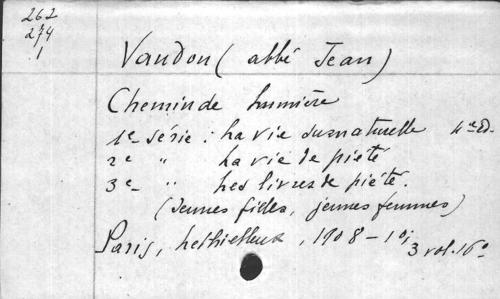 262
274
1
Vaudon (abbé Jean)
Chemin de lumière
1e série : La vie surnaturelle 4e éd.
2e " La vie de piété
3e " Les livres de piété.
(Jeunes filles, jeunes femmes)
Paris, Lethielleux, 1908-10; 3 vol. 16º